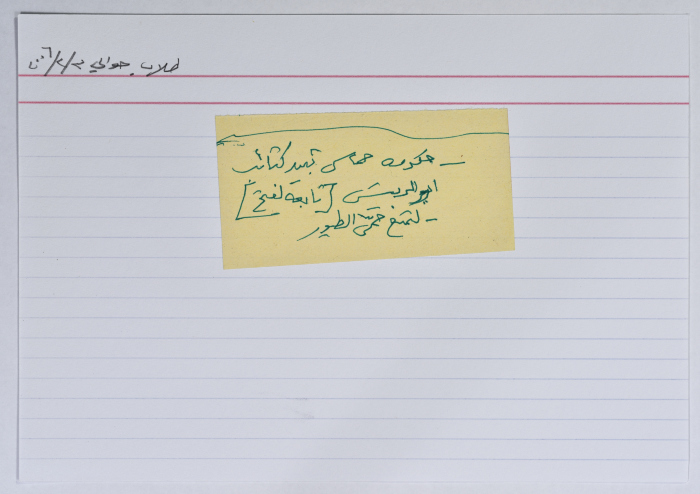 طلاب حوالي
– حكومة حماس تبيد كتائب
ابو الريش [تابعة لفتح]
– لتمنع حتى الطيور